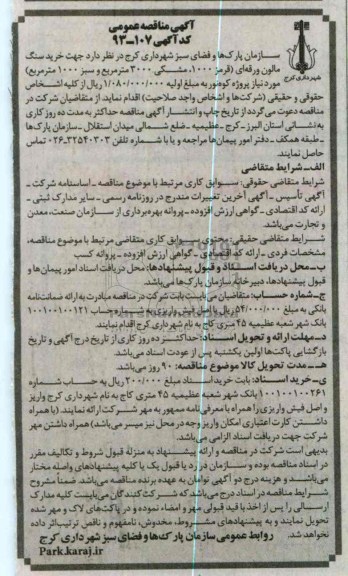 آگهی مناقصه عمومی
کد آگهی ۱۰۷-۹۳
شهرداری کرج
سازمان پارک‌ها و فضای سبز شهرداری کرج در نظر دارد جهت خرید سنگ
مالون ورقه‌ای (قرمز ۱۰۰۰، مشکی ۳۰۰۰ مترمربع و سبز ۱۰۰۰ مترمربع)
مورد نیاز پروژه کوهنور به مبلغ اولیه ۱/۰۸۰/۰۰۰/۰۰۰ ریال از کلیه اشخاص
حقوقی و حقیقی (شرکت‌ها و اشخاص واجد صلاحیت) اقدام نماید. از متقاضیان شرکت در
مناقصه دعوت می‌گردد از تاریخ چاپ و انتشار آگهی مناقصه حداکثر به مدت ده روز کاری
به نشانی استان البرز - کرج - عظیمیه - ضلع شمالی میدان استقلال - سازمان پارک‌ها
- طبقه همکف - دفتر امور پیمان‌ها مراجعه و یا با شماره تلفن ۳۲۵۴۰۳۰۳-۰۲۶ تماس
حاصل نمایند.
الف - شرایط متقاضی
شرایط متقاضی حقوقی: سوابق کاری مرتبط با موضوع مناقصه - اساسنامه شرکت -
آگهی تأسیس - آگهی آخرین تغییرات مندرج در روزنامه رسمی - سایر مدارک ثبتی -
ارائه کد اقتصادی - گواهی ارزش افزوده - پروانه بهره‌برداری از سازمان صنعت، معدن
و تجارت می‌باشد.
شرایط متقاضی حقیقی: محتوی سوابق کاری متقاضی مرتبط با موضوع مناقصه،
مشخصات فردی - ارائه کد اقتصادی - گواهی ارزش افزوده - پروانه کسب
ب - محل دریافت اسناد و قبول پیشنهادها: محل دریافت اسناد امور پیمان‌ها و
قبول پیشنهادها، دبیرخانه سازمان پارک‌ها می‌باشد.
ج - شماره حساب: متقاضیان می‌بایست بابت شرکت در مناقصه مبادرت به ارائه ضمانتنامه
بانکی به مبلغ ۵۴/۰۰۰/۰۰۰ ریال یا اصل فیش واریزی به شماره حساب ۱۰۰۱۰۰۱۰۰۱۲۱
بانک شهر شعبه عظیمیه ۴۵ متری کاج به نام شهرداری کرج اقدام نمایند.
د - مهلت ارائه و تحویل اسناد: حداکثر ده روز کاری از تاریخ درج آگهی و تاریخ
بازگشایی پاکت‌ها اولین یکشنبه پس از عودت اسناد می‌باشد.
هـ - مدت تحویل کالا موضوع مناقصه: ۹۰ روز می‌باشد.
ی - خرید اسناد: بابت خرید اسناد مبلغ ۲۰۰/۰۰۰ ریال به حساب شماره
۱۰۰۱۰۰۱۰۰۲۶۱ بانک شهر شعبه عظیمیه ۴۵ متری کاج به نام شهرداری کرج واریز
و اصل فیش واریزی را همراه با معرفی‌نامه ممهور به مهر شرکت ارائه نمایند. (با همراه
داشتن کارت اعتباری امکان واریز وجه در محل نیز میسر می‌باشد) همراه داشتن مهر
شرکت جهت دریافت اسناد الزامی می‌باشد.
بدیهی است شرکت در مناقصه و ارائه پیشنهاد به منزله قبول شروط و تکالیف مقرر
در اسناد مناقصه بوده و سازمان در رد یا قبول یک یا کلیه پیشنهادهای واصله مختار
می‌باشد و هزینه درج دو آگهی توامان به عهده برنده مناقصه می‌باشد. ضمناً مشروح
شرایط مناقصه در اسناد درج می‌باشد که شرکت کنندگان می‌بایست کلیه مدارک
ارسالی را پس از اخذ با قید قبولی مهر و امضاء نموده و در پاکت‌های لاک و مهر شده
تحویل نمایند و به پیشنهادهای مشروط، مخدوش، نامفهوم و ناقص ترتیب‌اثر داده
نخواهد شد.
روابط عمومی سازمان پارک‌ها و فضای سبز شهرداری کرج
Park.karaj.ir